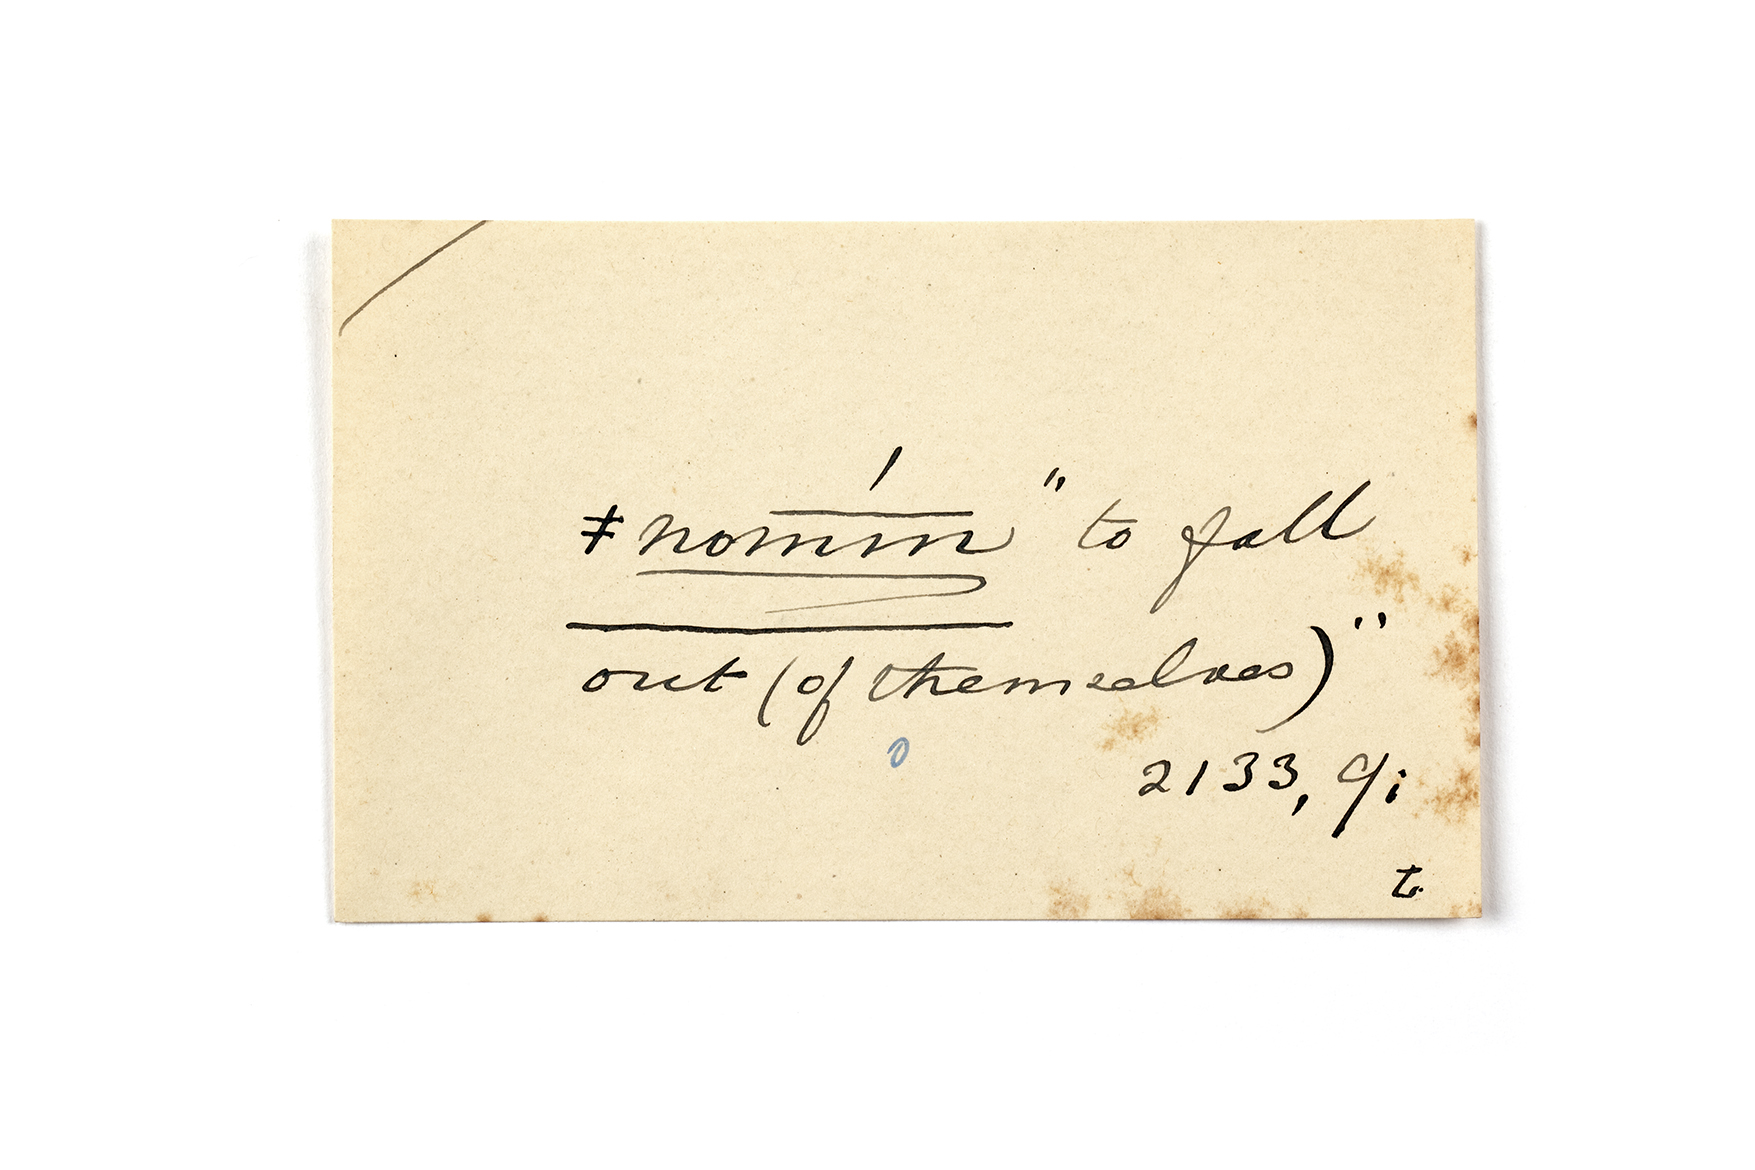 ǂnomín " to fall
out (of themselves)"
0
2133, qi
t.